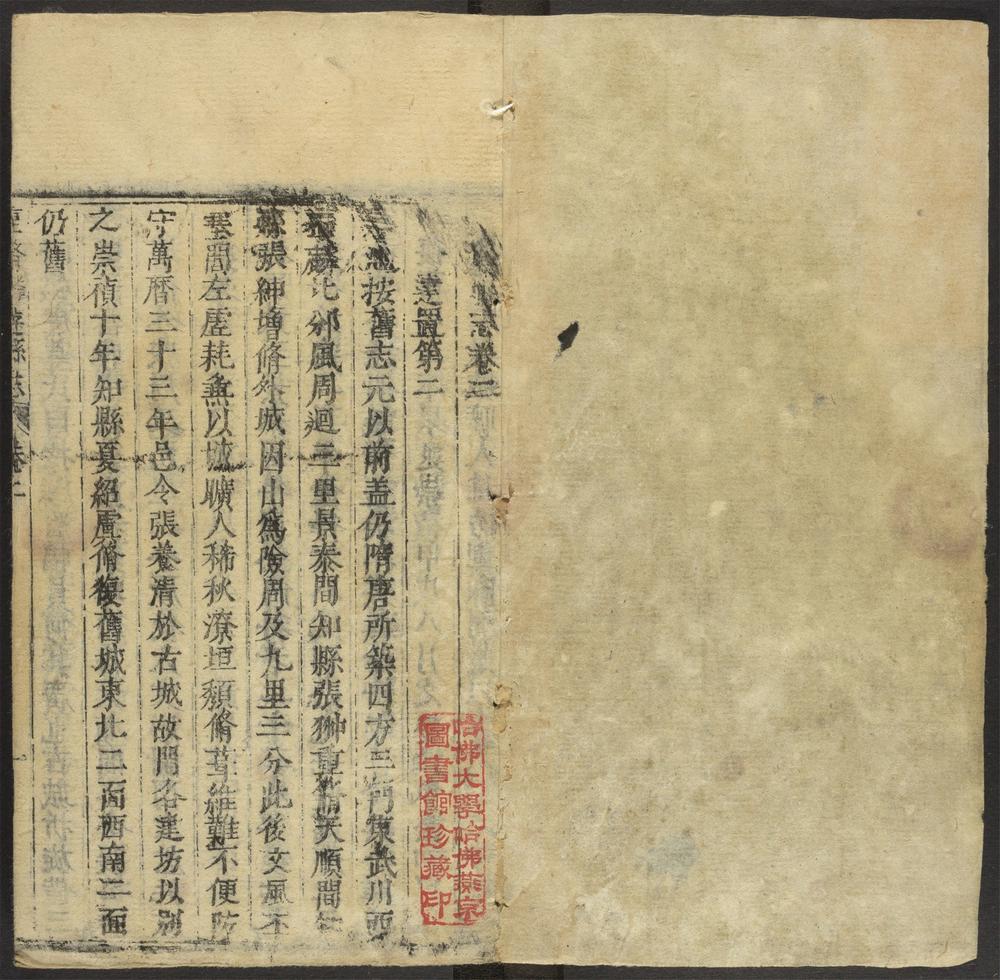 志卷二
建置第二
按舊志元以前盖仍隋唐所築四方三門東武川西
比邠風周迴三里景泰間知縣張翀重脩天順間知
縣張紳增脩外城因山為險周及九里三分此後文風不
墜閭左虛耗兼以城曠人稀秋潦垣頹脩葺維難不便防
守萬曆三十三年邑令張養清於古城故門各建坊以別
之崇禎十年知縣夏紹虞脩復舊城東北二面西南二面
仍舊
縣志 卷二
哈佛大學哈佛燕京
圖書館珍藏印